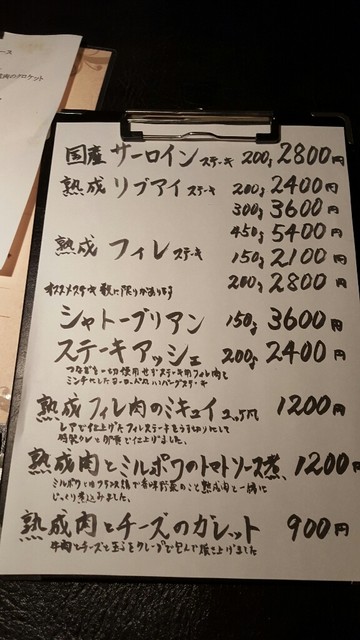 ース
のクロケット
国産 サーロインステーキ 200g 2800円
熟成 リブアイステーキ 200g 2400円
300g 3600円
450g 5400円
熟成 フィレステーキ 150g 2100円
200g 2800円
オススメステーキ 数に限りがあります
シャトーブリアン 150g 3600円
ステーキアッシェ 200g 2400円
つなぎを一切使用せずステーキ用フィレ肉を
ミンチにしたヨーロッパ風ハンバーグステーキ
熟成フィレ肉のミキュイ 1200円
レアで仕上げたフィレステーキをうす切りにして
仕上げました。
熟成肉とミルポワのトマトソース煮 1200円
ミルポワとはフランス語で香味野菜のこと熟成肉と一緒に
じっくり煮込みました。
熟成肉とチーズのガレット 900円
牛肉とチーズと玉子をクレープで包んで焼き上げました